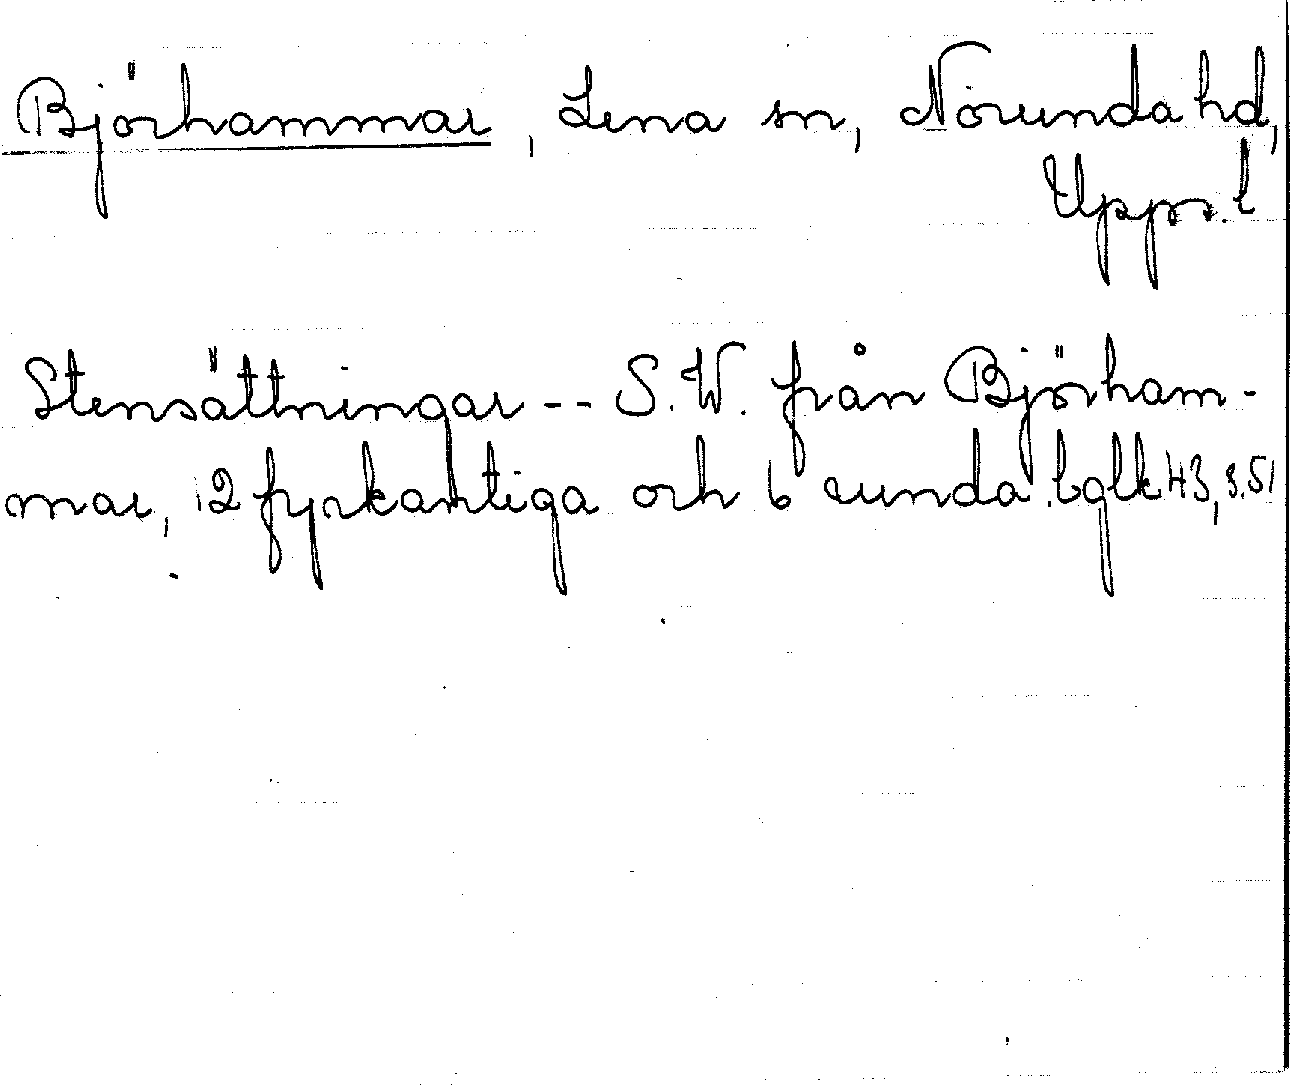 Björhammar, Lena sn, Norunda hd,
Upps. l
Stensättningar -- S.W. från Björham-
mar, 12 fyrkantiga och 6 runda. bglk 43, s. 51